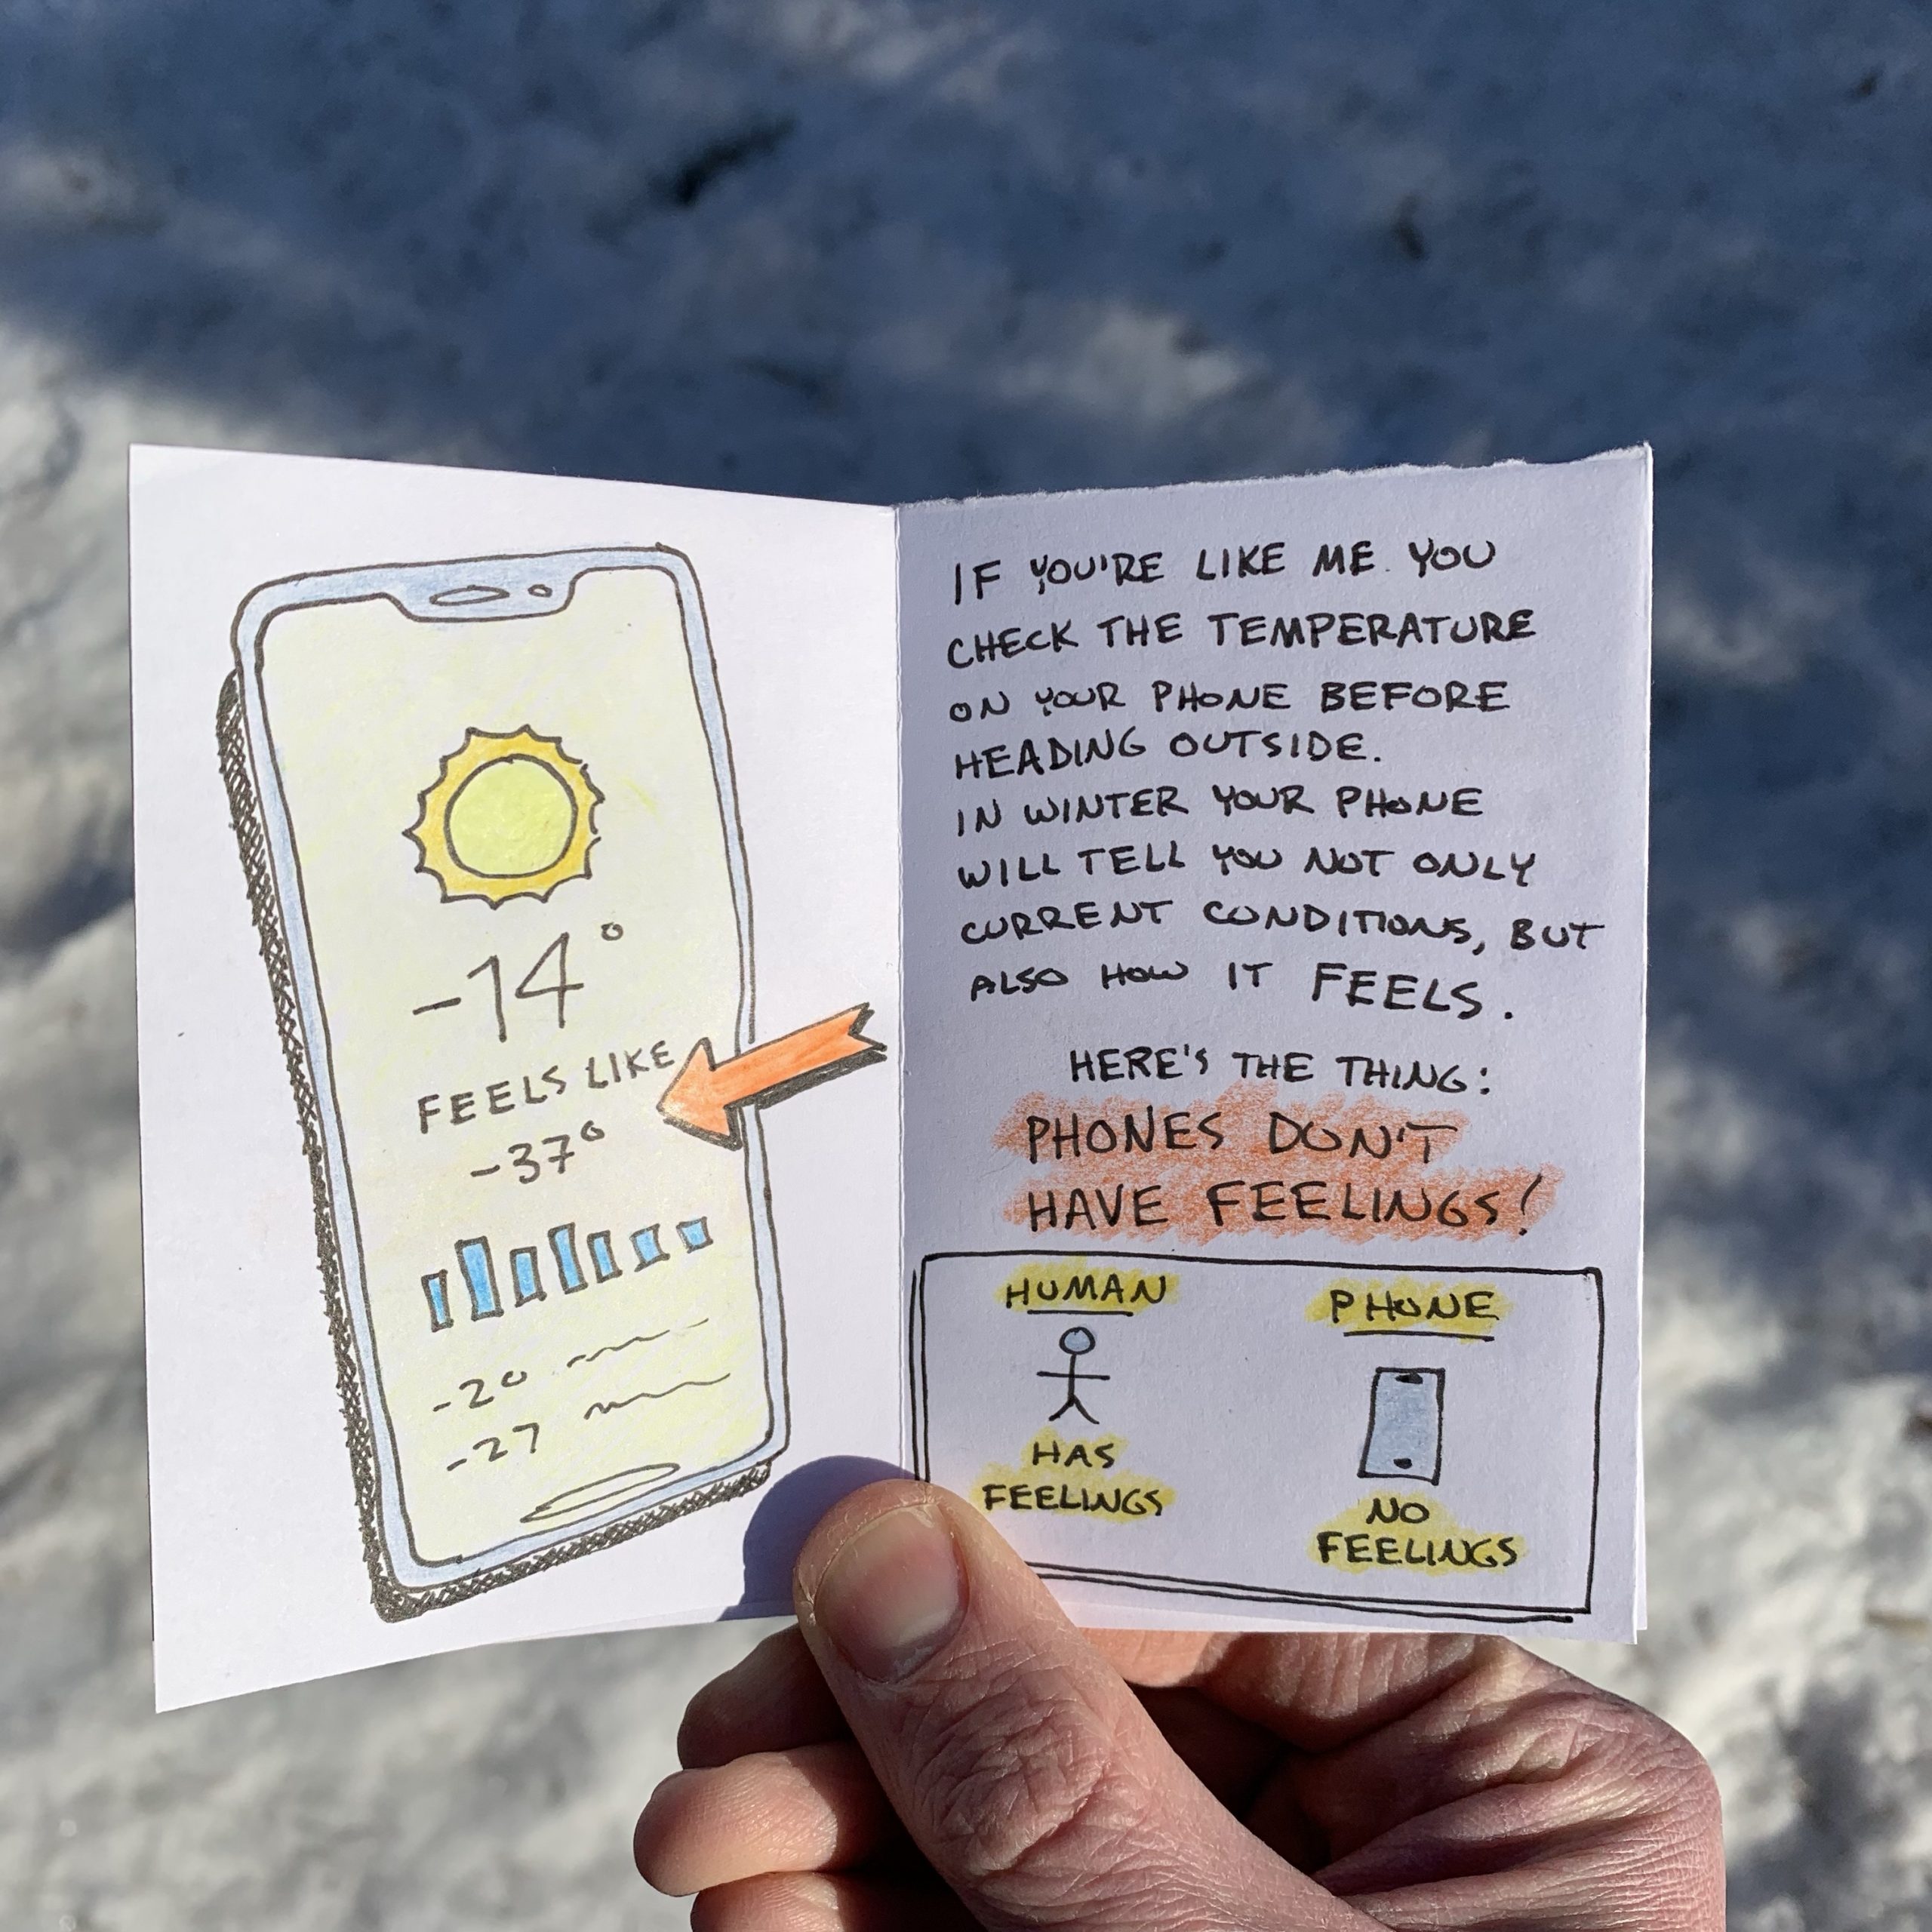 -14°
FEELS LIKE
-37°
-20
-27
IF YOU'RE LIKE ME YOU
CHECK THE TEMPERATURE
ON YOUR PHONE BEFORE
HEADING OUTSIDE.
IN WINTER YOUR PHONE
WILL TELL YOU NOT ONLY
CURRENT CONDITIONS, BUT
ALSO HOW IT FEELS.
HERE'S THE THING:
PHONES DON'T
HAVE FEELINGS!
HUMAN
HAS
FEELINGS
PHONE
NO
FEELINGS